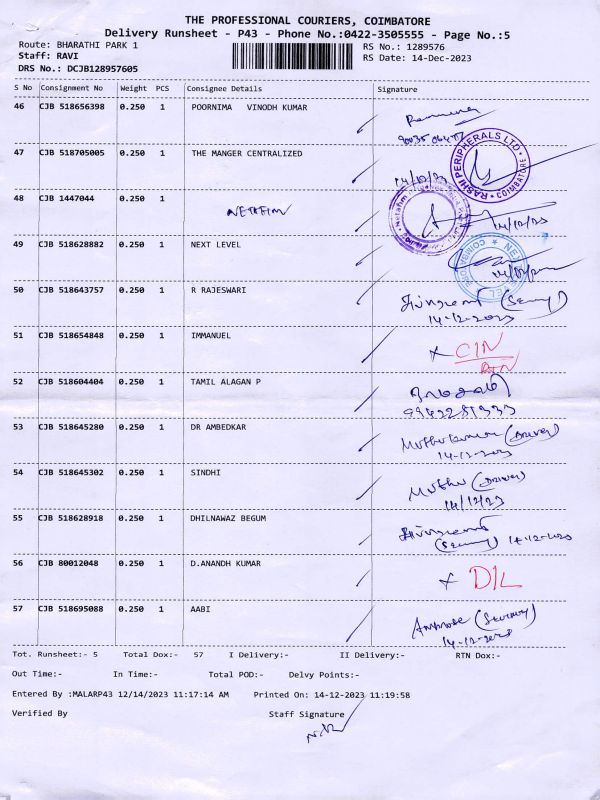 THE PROFESSIONAL COURIERS, COIMBATORE
Delivery Runsheet - P43 - Phone No.:0422-3505555 - Page No.:5
Route: BHARATHI PARK 1 RS No.: 1289576
Staff: RAVI RS Date: 14-Dec-2023
DRS No.: DCJB128957605
S No Consignment No Weight PCS Consignee Details Signature
46 CJB 518656398 0.250 1 POORNIMA VINODH KUMAR
47 CJB 518705005 0.250 1 THE MANGER CENTRALIZED 14/12/23 RASHI PERIPHERALS LTD. COIMBATORE
48 CJB 1447044 0.250 1 NETAFIM 14/12/23
49 CJB 518628882 0.250 1 NEXT LEVEL
50 CJB 518643757 0.250 1 R RAJESWARI
14-12-2023
51 CJB 518654848 0.250 1 IMMANUEL CIN
RTN
52 CJB 518604404 0.250 1 TAMIL ALAGAN P
53 CJB 518645280 0.250 1 DR AMBEDKAR (Driver)
14-12-2023
54 CJB 518645302 0.250 1 SINDHI Muthu (Driver)
14/12/23
55 CJB 518628918 0.250 1 DHILNAWAZ BEGUM
14-12-2023
56 CJB 80012048 0.250 1 D.ANANDH KUMAR DIL
57 CJB 518695088 0.250 1 AABI Ambrose
14-12-2023
Tot. Runsheet:- 5 Total Dox:- 57 I Delivery:- II Delivery:- RTN Dox:-
Out Time:- In Time:- Total POD:- Delvy Points:-
Entered By :MALARP43 12/14/2023 11:17:14 AM Printed On: 14-12-2023 11:19:58
Verified By Staff Signature